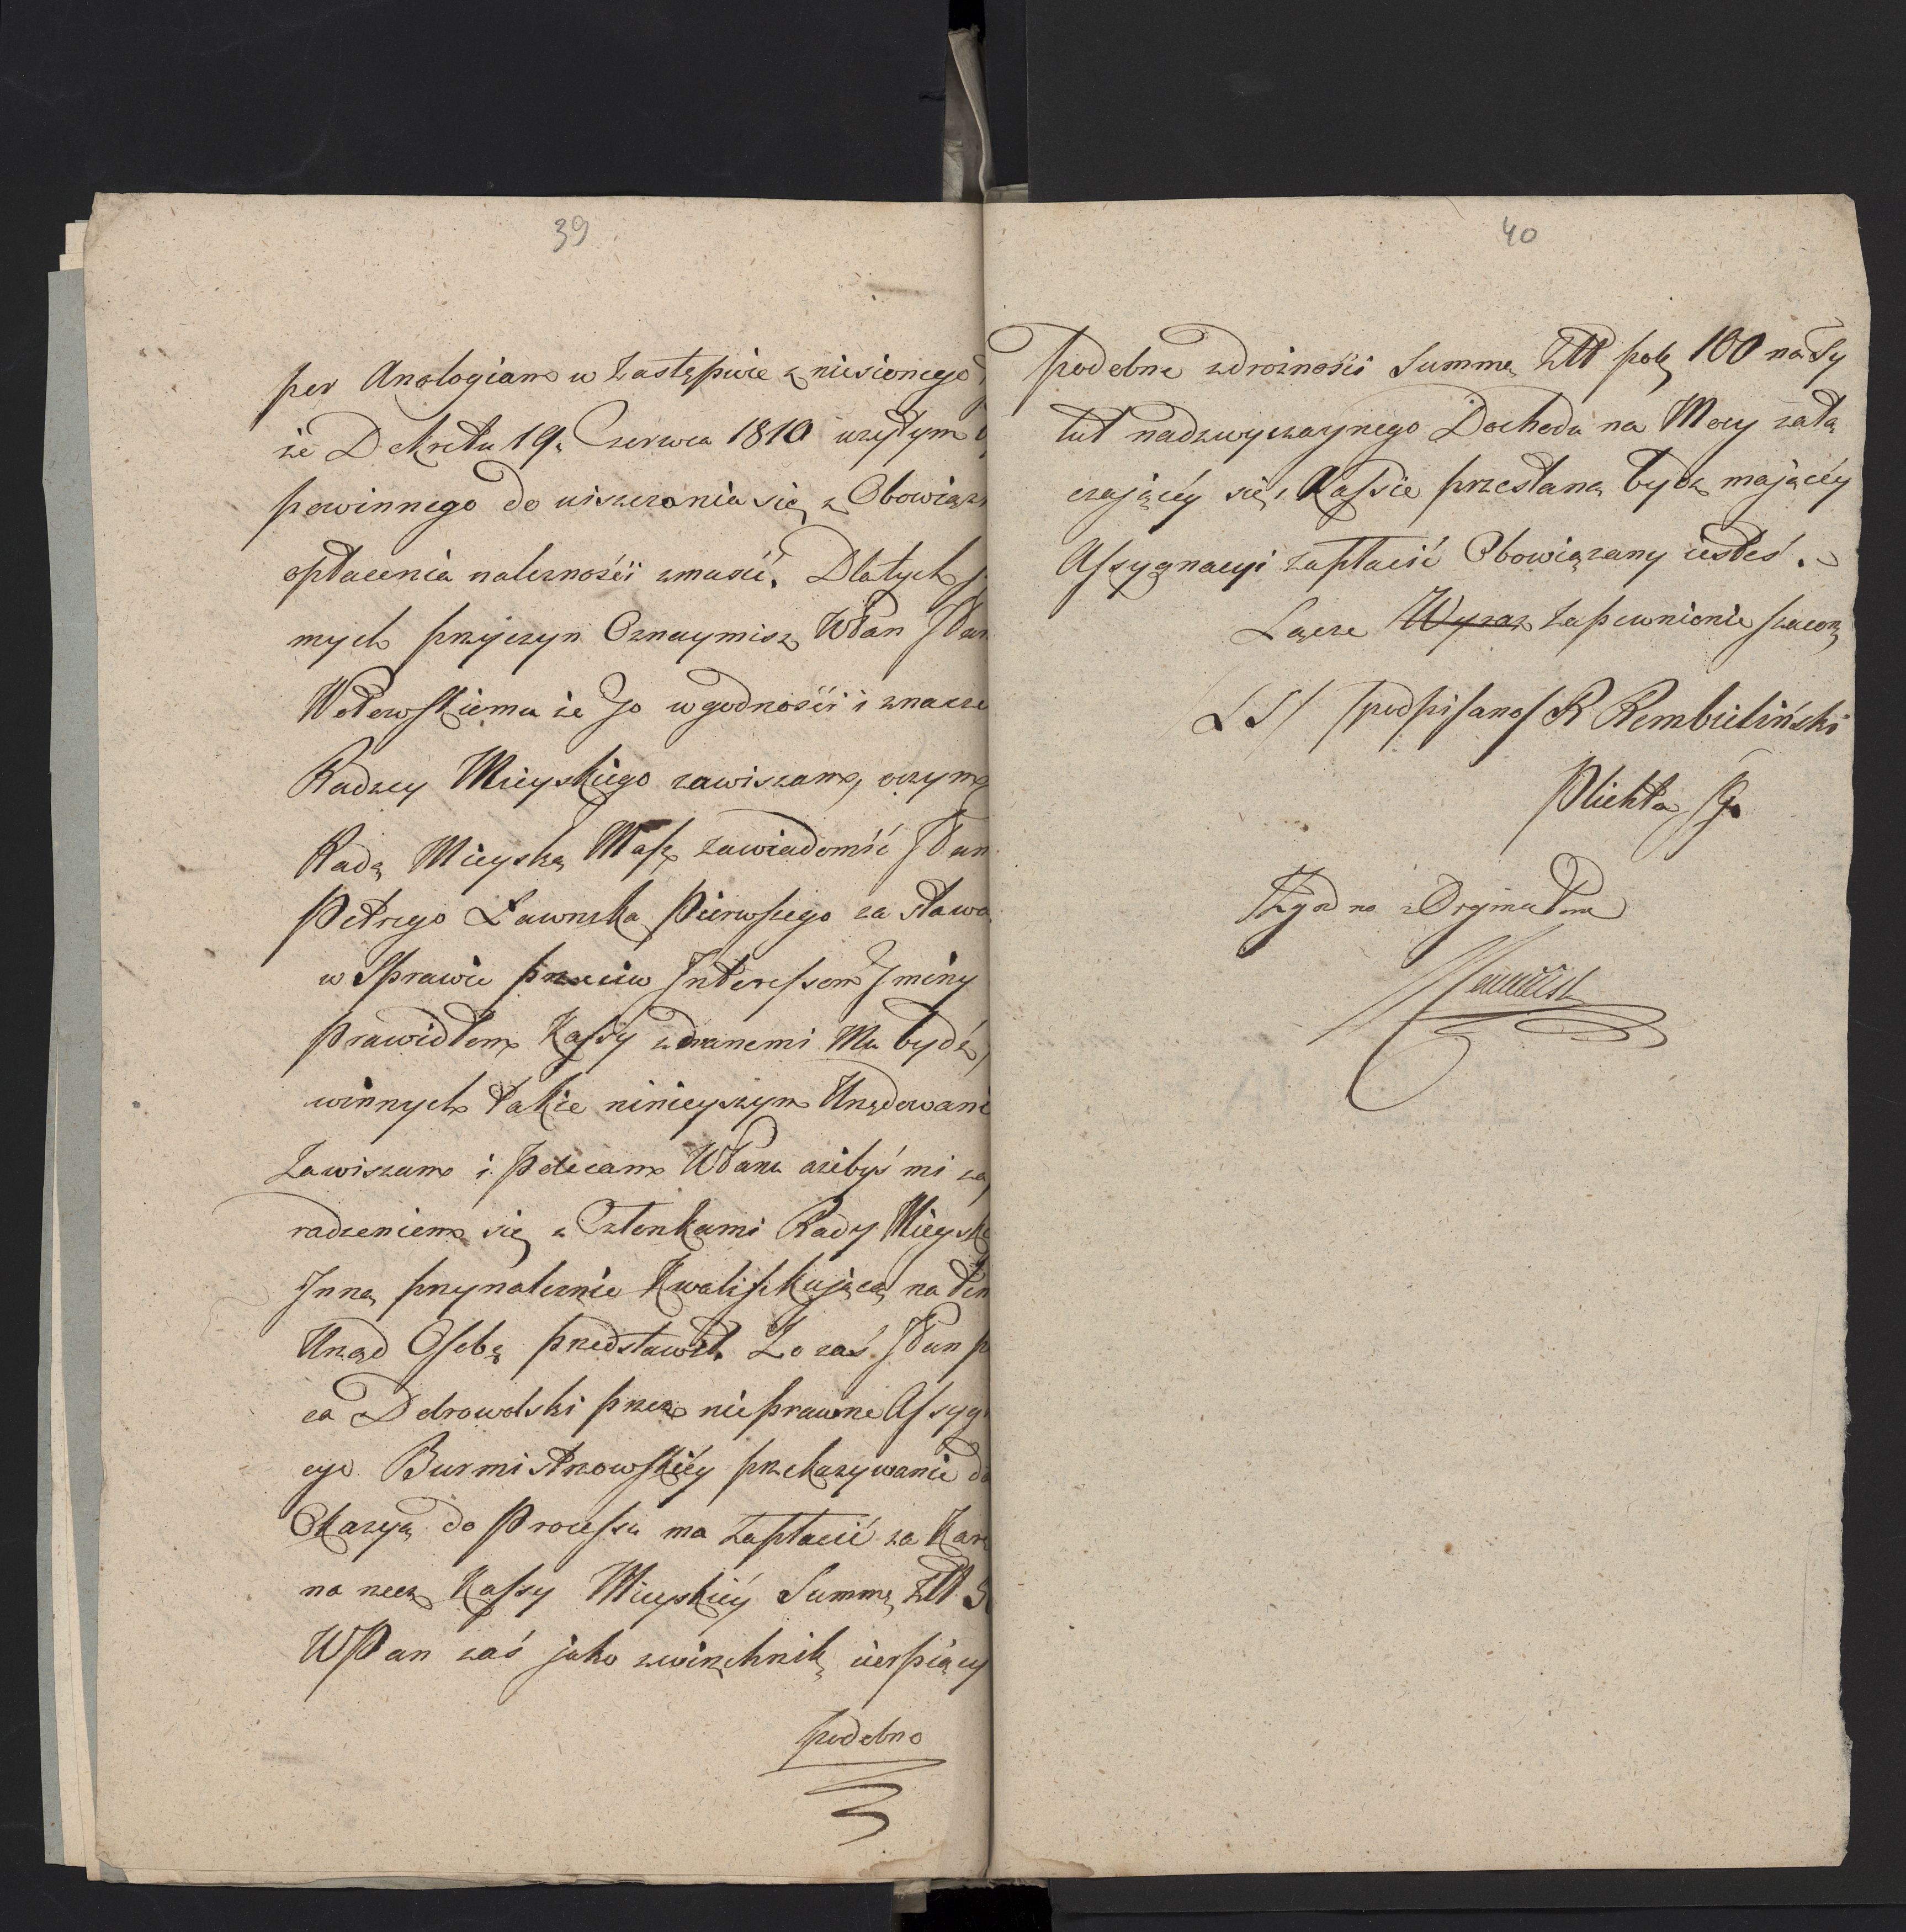 39
per Analogiam w Zastępie zniesionego
że Dekretu 19. Czerwca 1810 użytym
powinnego do uiszczenia się z Obowiąz
opłacenia należności zmusić. Dla tych
mych przyczyn Oznaymisz WPan JPan
Wołowskiemu że Go w godności i znacze
Radzcy Mieyskiego zawieszam, o czym
Radę Mieyską Masz zawiadomić JPan
Ławnika Pierwszego za stawa
w Sprawie przeciw Interessom Gminy
Prawidłem Kassy zdanemi Mu bydź
winnych także ninieyszym Urzędowani
Zawieszam i Polecam WPanu ażebyś mi za
radzeniem się z Członkami Rady Mieysk
Inną przynależnie Kwalifikującą na ten
Urząd Osobę przedstawił. Zo zaś JPan p
ca Dobrowolski przez nieprawne Assyg
cyi Burmistrzowskiéy przekazywanie da
Okazyą do Processu ma Zapłacić za Kar
na rzecz Kassy Mieyskiéy Summę Złł 5
WPan zaś jako zwierzchnik cierpiący
podobne
40
podobne zdrożności Summę Złł pol. 100 na Ty
tuł nadzwyczaynego Dochodu na Mocy załą
czaiącéy się, Kassie przesłaną bydź maiącéy
Assygnacyi Zapłacić Obowiązany iesteś.
Łączę Wyraz Zapewnienie szacon
LS/ /podpisano/ R Rembieliński
Plichta SG
Zgodno z Oryginałem